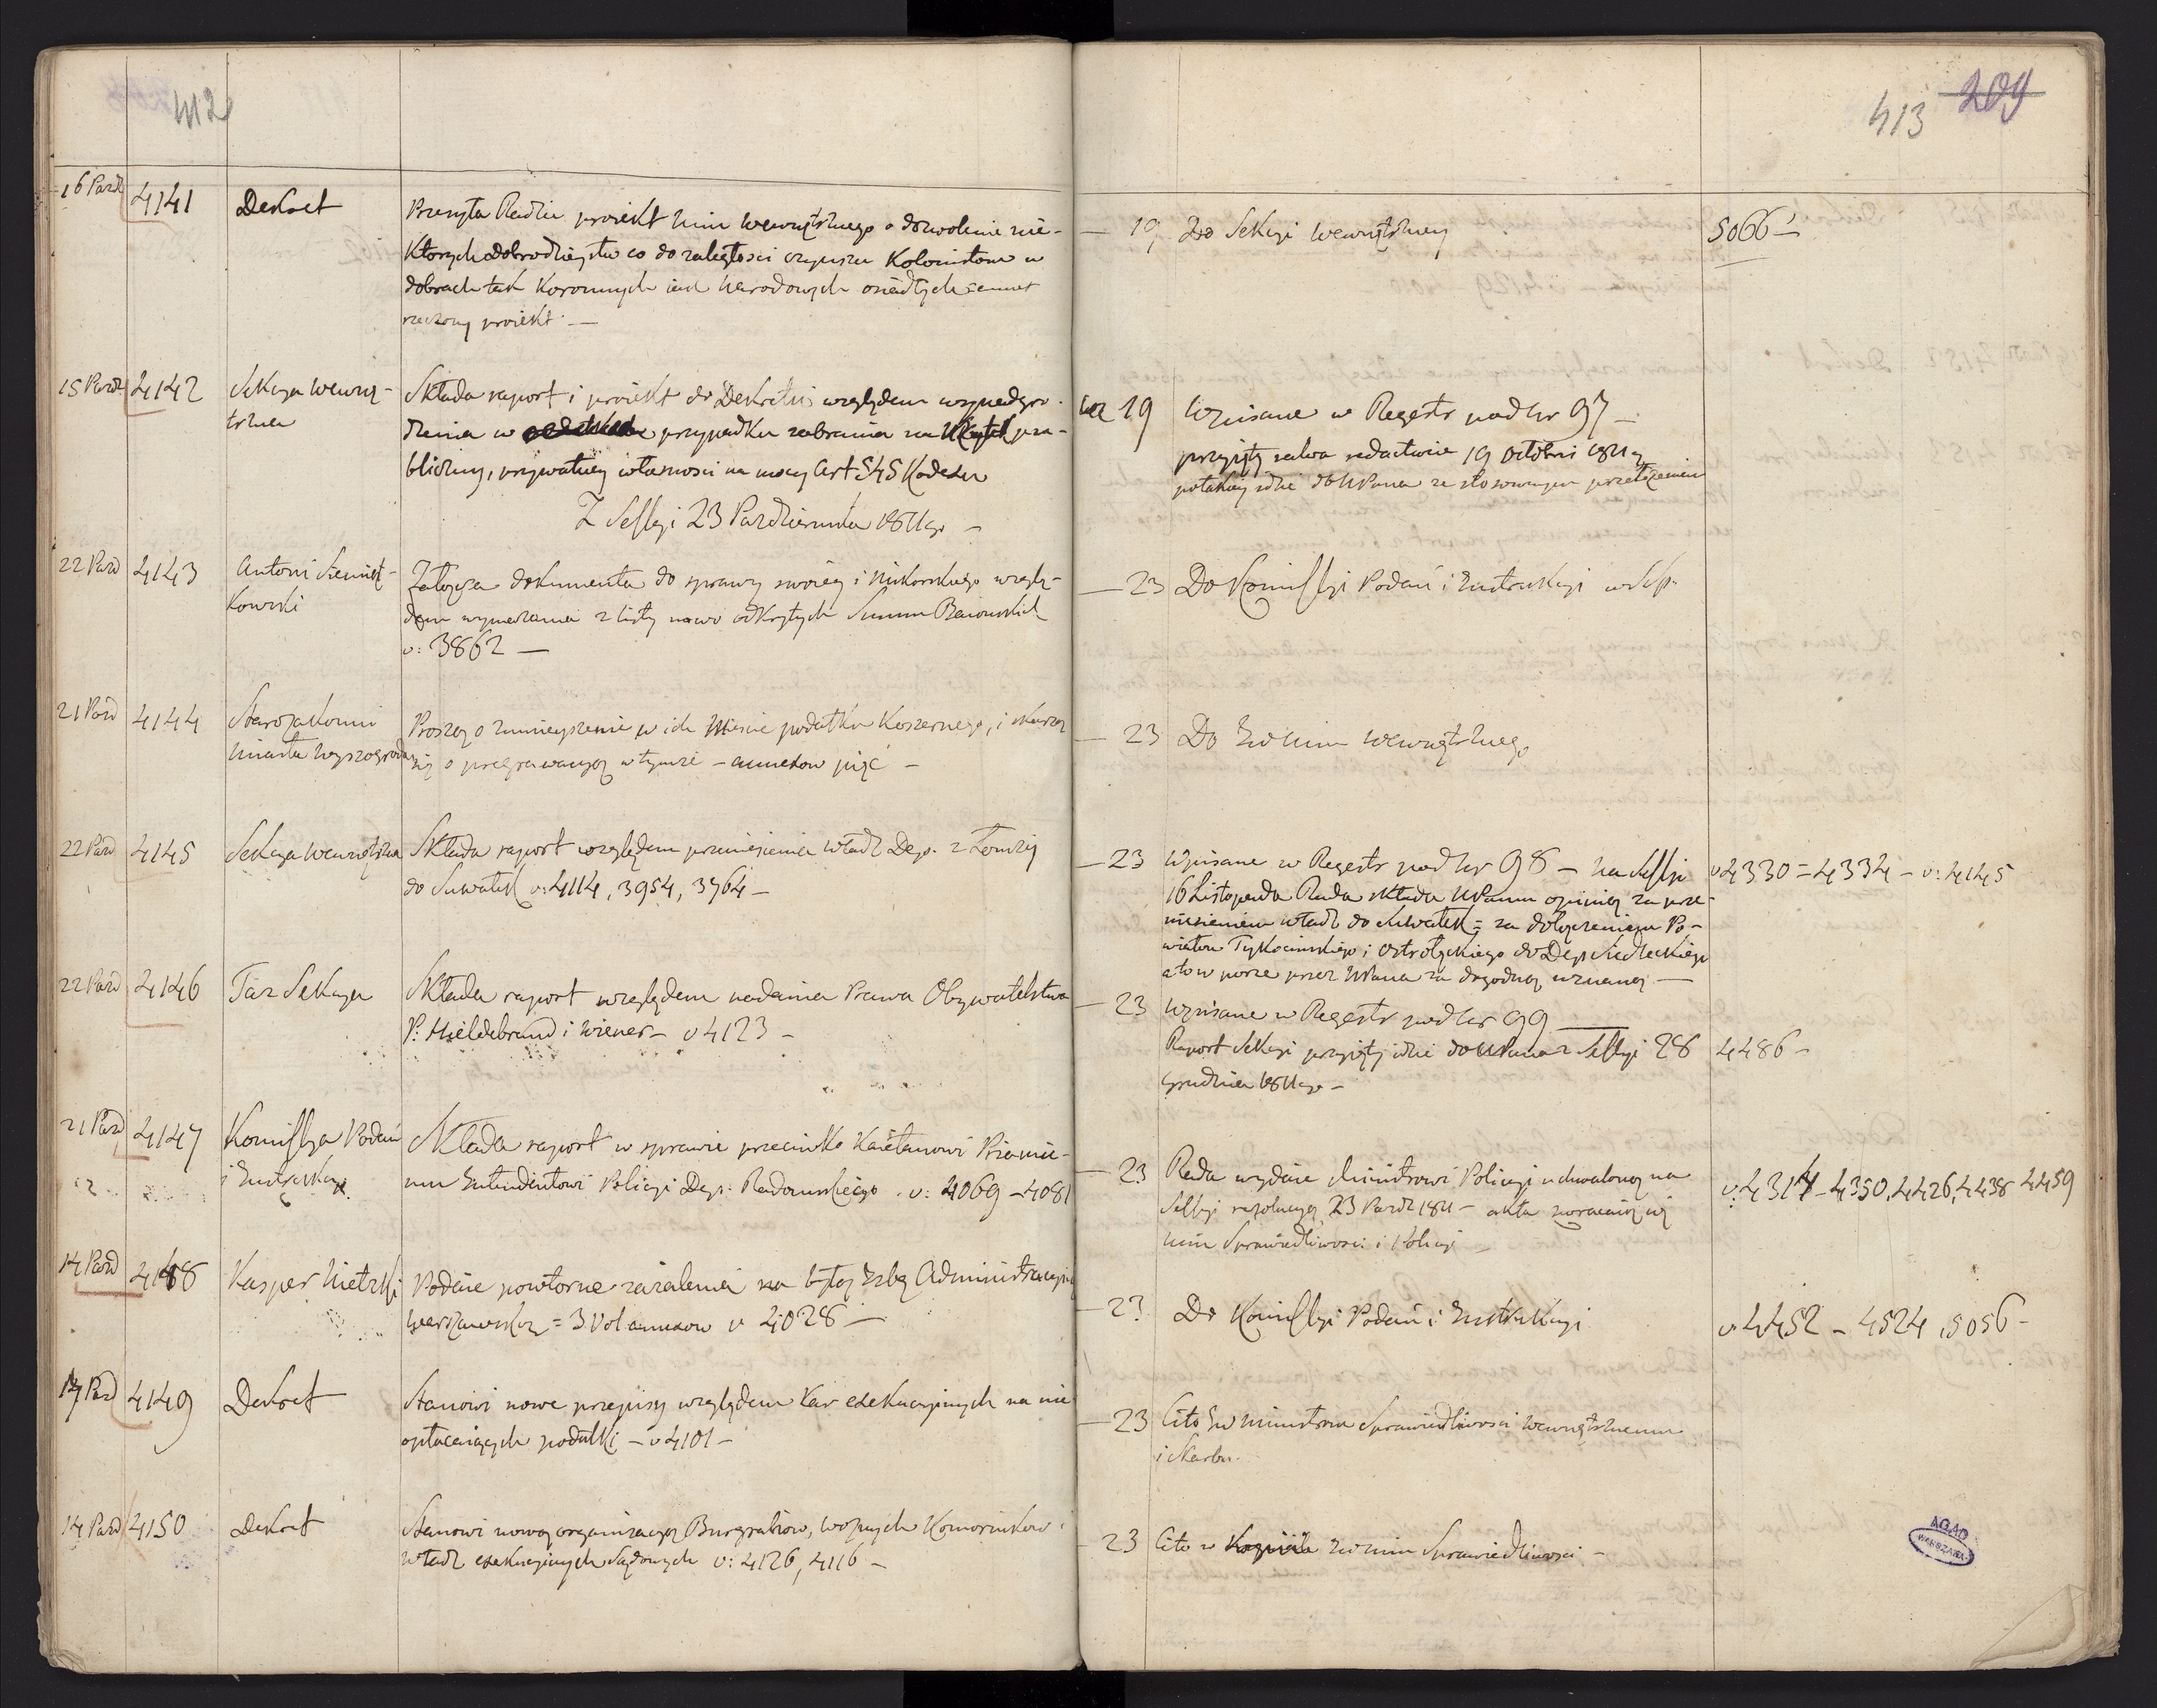 412
16 Paźd
4141
Dekret
Przesyła Radzie projekt Min Wewnętrznego o dozwolenie nie-
których dobrodzieystw co do zaległosci czynszu Kolonistom w
dobrach tak Koronnych iak Narodowych osiadłych annex
rzeczony proiekt —
— 19 Do Sekcyi Wewnętrzney
5066 —
15 Paźd
4142
Sekcya Wewnę-
trzna
Składa raport i proiekt do Dekretu względem wynadgro-
dzenia w przypadku zabrania na Użytek pu-
bliczny, prywatney własnosci na mocy Art 545 Kodexu
19 Wpisane w Regestr pod Nr 97 —
przyięty salva redactione 19 Octobris 1811
idzie do NPana ze stosownym przełożeniem
Z Sessyi 23 Pazdziernika 1811 go —
22 Paźd
4143
Antoni
kowski
Załącza dokumenta do sprawy swoiey i Nikorskiego wzglę-
dem wymazania z listy nowo odkrytych Summ Baiońskich
v: 3862 —
— 23 Do Komissyi Podań i Instrukcyi
21 Paźd
4144
Starozakonni
Miasta Wyszogroda
Proszą o zmnieyszenie w ich Miescie podatku Koszernego, i skarżą
się o pregrawacyą w tymże — annexow pięć —
— 23 Do Min Wewnętrznego
22 Paźd
4145
Sekcya Wewnętrzna
Składa raport względem przeniesienia Władz Dep. z Łomży
do Suwałk v: 4114, 3954, 3764 —
— 23 Wpisane w Regestr pod Nr 98 — na Sessyi
16 Listopada Rada składa NPanu opinię za prze-
niesieniem władz do Suwałk = za dołączeniem Po-
wiatów Tykocinskiego i Ostrołęckiego do Dep Siedleckiego
a to w porze przez NPana za dogodną uznaney —
v 4330 = 4334 — v: 4145
22 Paźd
4146
Taż Sekcya
Składa raport względem nadania Prawa Obywatelstwa
P: Hieldebrand i Wiener — v 4123 —
— 23 Wpisane w Regestr pod Nr 99 —
Raport Sekcyi przyięty idzie do NPana z Sessyi 28
Grudnia 1811 go —
4486 —
21 Paźd
4147
Komissya Podań
i Instrukcyi
Składa raport w sprawie przeciwko Kaietanowi
Intendentowi Policyi Dep: Radomskiego v: 4069 — 4081
— 23 Rada wydaie Ministrowi Policyi uchwaloną na
Sessyi rezolucyą 23 Paźdz 1811 — akta zwracaią się
Min Sprawiedliwosci i Policyi —
v: 4317 — 4350, 4426, 4438 4459
14 Paźd
4148
Kasper Nietzki
Podaie powtorne zażalenia na byłą Izbę Administracyiną
Warszawską = 3 Vol annexow v 4028 —
— 23 Do Komissyi Podań i Instrukcyi
v. 4452 — 4524, 5056 —
14 Paźd
4149
Dekret
Stanowi nowe przepisy względem Kar exekucyinych na nie
opłacaiących podatki — v 4101 —
— 23 Cito Ministrom Sprawiedliwosci Wewnętrznemu
i Skarbu.
14 Paźd
4150
Dekret
Stanowi nową organizacyą Burgrabiow, Woźnych Komornikow i
władz exekucyinych Sądowych v: 4126, 4116 —
23 Cito w Min Sprawiedliwosci —
413 209
AGAD
WARSZAWA